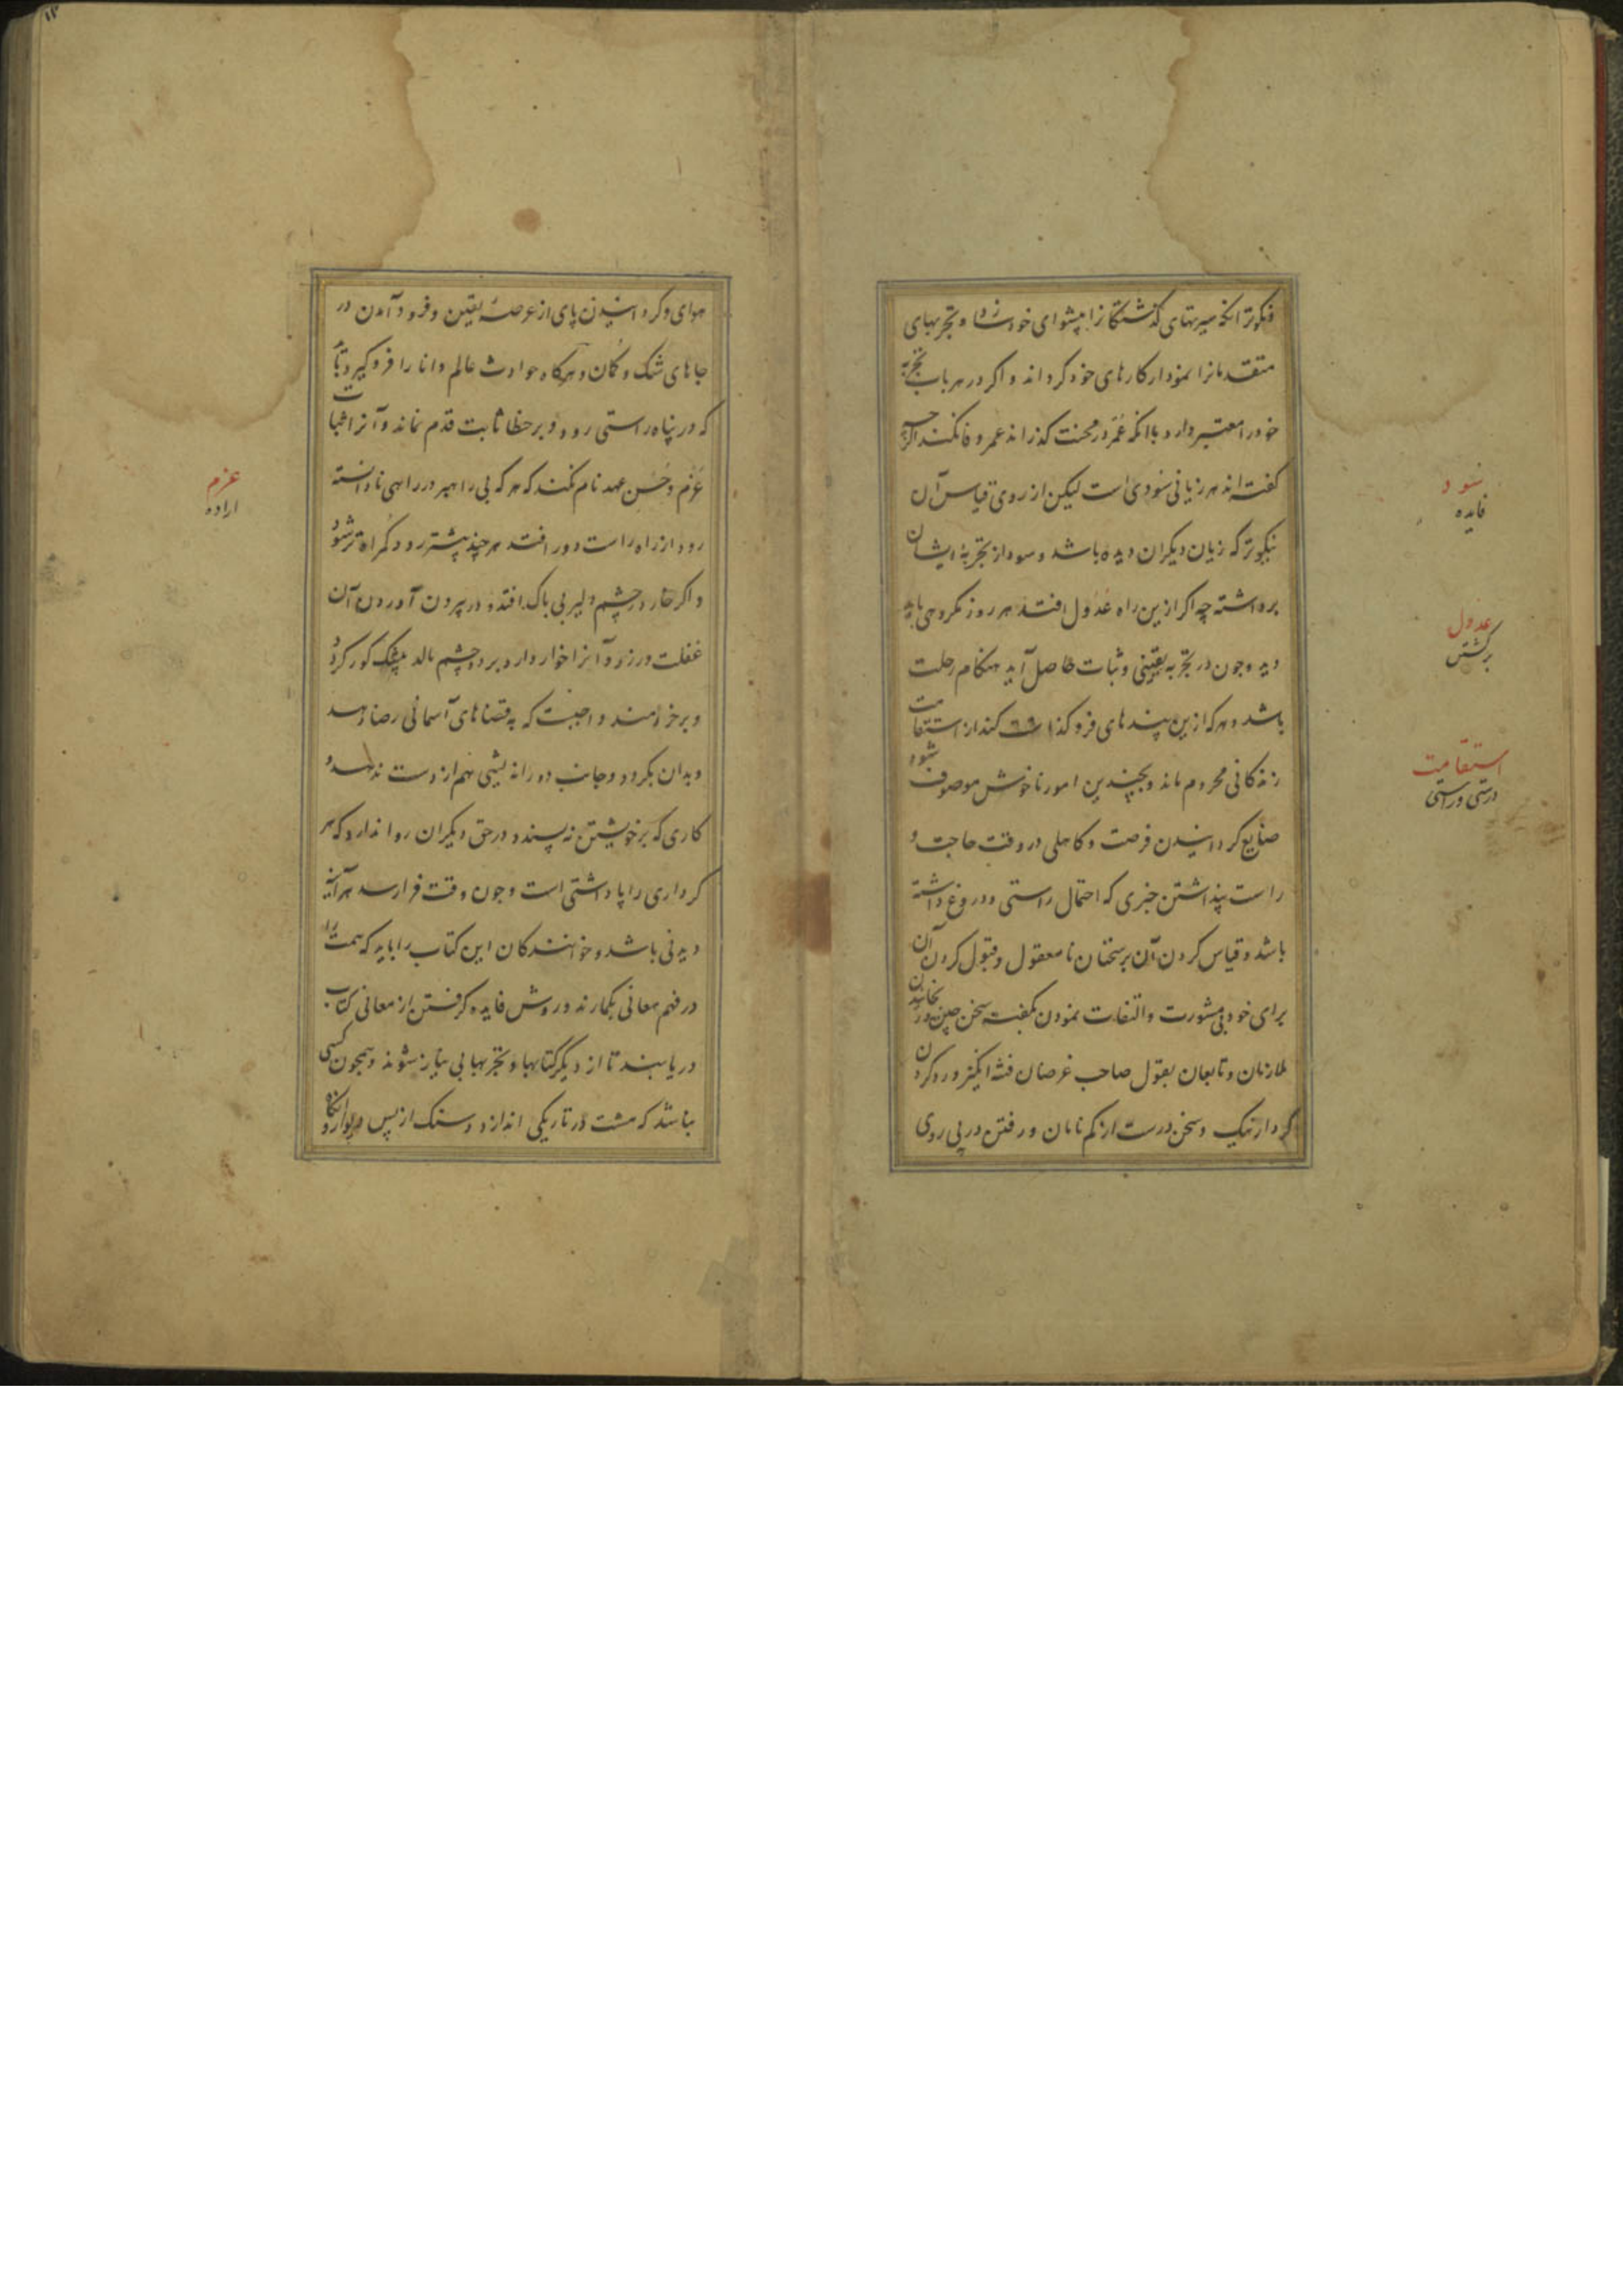 و نیکوتر آنکه سیرتهای گذشتگانرا پیشوای خود سازد و تجربهای
متقدمانرا نمودار کارهای خود گرداند و اگر در هر باب تجربه
خود را معتبر دارد با آنکه عمر در محنت گذراند عمر وفا نکند اگرچه
گفته اند هر زیانی سودی است لیکن از روی قیاس آن
نیکوتر که زیان دیگران دیده باشد و سود از تجربهٔ ایشان
برداشته چه اگر ازین راه عُدول افتد هر روز مکروهی باید
دید و چون در تجربه یقینی و ثبات حاصل آید هنگام رحلت
باشد و هرکه ازین پندهای فرو گذاشت کند از استقامت
زندگانی محروم ماند و بچندین امور ناخوش موصوف شود
ضایع گردانیدن فرصت و کاهلی در وقت حاجت و
راست پنداشتن خبری که احتمال راستی و دروغ داشته
باشد و قیاس کردن آن بر سخنان نامعقول و قبول کردن آن
برای خود بی مشورت و التفات نمودن بگفته سخن چین و رنجانیدن
ملازمان و تابعان بقول صاحب غرضان فتنه انگیز و رد کردن
کردار نیک و سخن درست از کم نامان و رفتن در پی روی
سود
فایده
عدول
برگشتن
استقامت
درستی و راستی
۱۲
هوای و گردانیدن پای از عرصهٔ یقین و فرود آمدن در
جاهای شک و گمان و هرگاه حوادث عالم دانا را فرو گیرد باید
که در پناه راستی رود و بر خطا ثابت قدم نماند و آنرا ثبات
عَزم و حُسن عهد نام نکند که هر که بی راهبر در راهی نادانسته
رود از راه راست دور افتد هر چند پیشتر رود گمراه تر شود
و اگر خار در چشم دلیر بی باک افتد و در بیرون آوردن آن
غفلت ورزد و آنرا خوار دارد و بر دو چشم مالد بیشک کور گردد
و بر خردمند واجبست که به قضاهای آسمانی رضا دهد
و بدان بگرود و جانب دوراندیشی هم از دست ندهد و
کاری که بر خویشتن نه پسندد در حق دیگران روا ندارد که هر
کرداری را پاداشتی است و چون وقت فرا رسد هر آینه
دیدنی باشد و خوانندکان این کتاب را باید که همت را
در فهم معانی بگمارند و روش فایده گرفتن از معانی کتاب
دریابند تا از دیگر کتابها و تجربها بی نیاز شوند و همچون کسی
نباشد که مشت در تاریکی اندازد و سنگ از پس دیوار و آنگاه
عزم
اراده